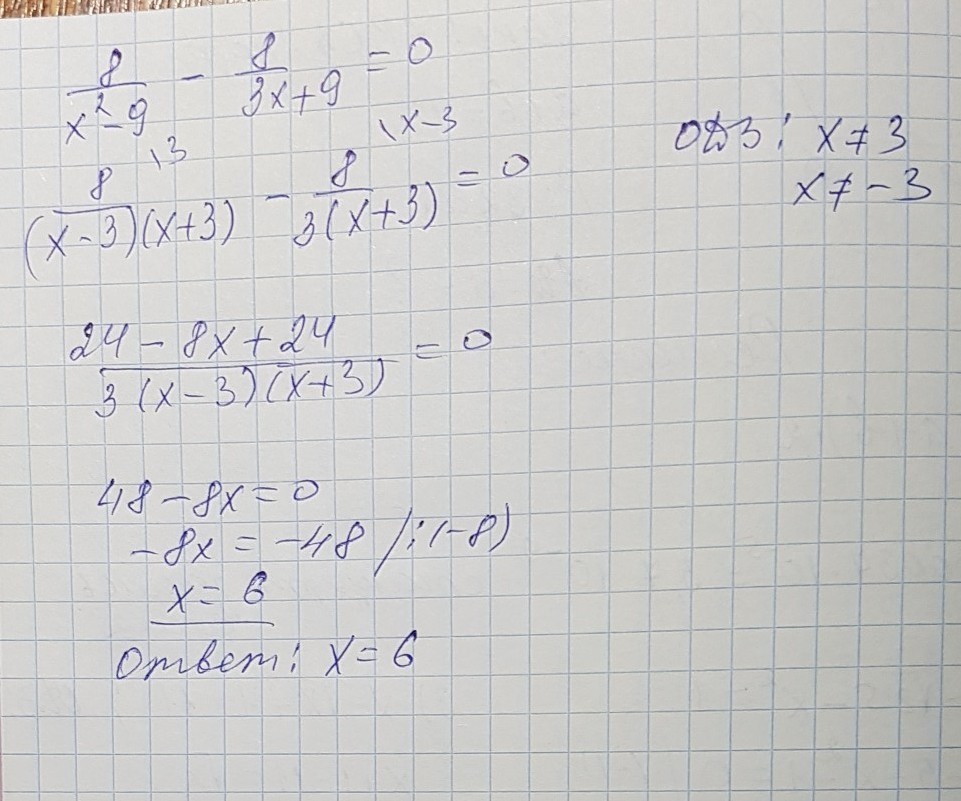 8/(x²-9) - 8/(3x+9) = 0
8\3/((x-3)(x+3)) - 8\x-3/(3(x+3)) = 0
ОДЗ: x≠3
x≠-3
(24-8x+24)/(3(x-3)(x+3)) = 0
48-8x=0
-8x = -48 /:(-8)
x= 6
Ответ: x=6